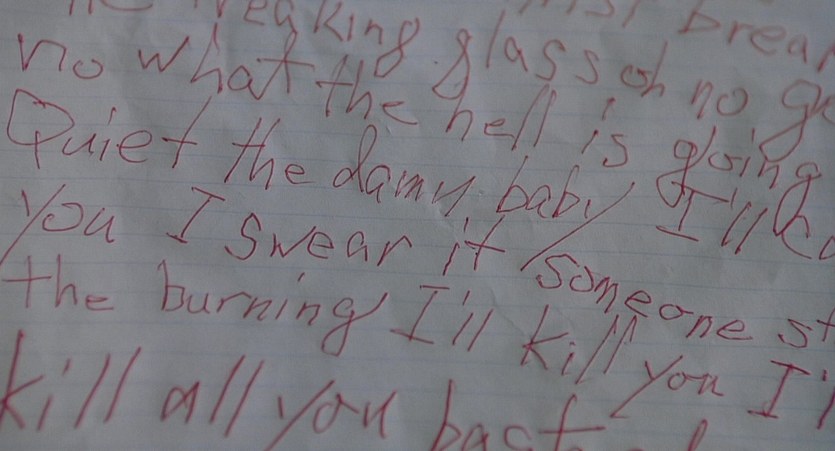 breaking glass oh no
no what the hell is going
Quiet the damn baby I'll
you I swear it someone
the burning I'll kill you
kill all you